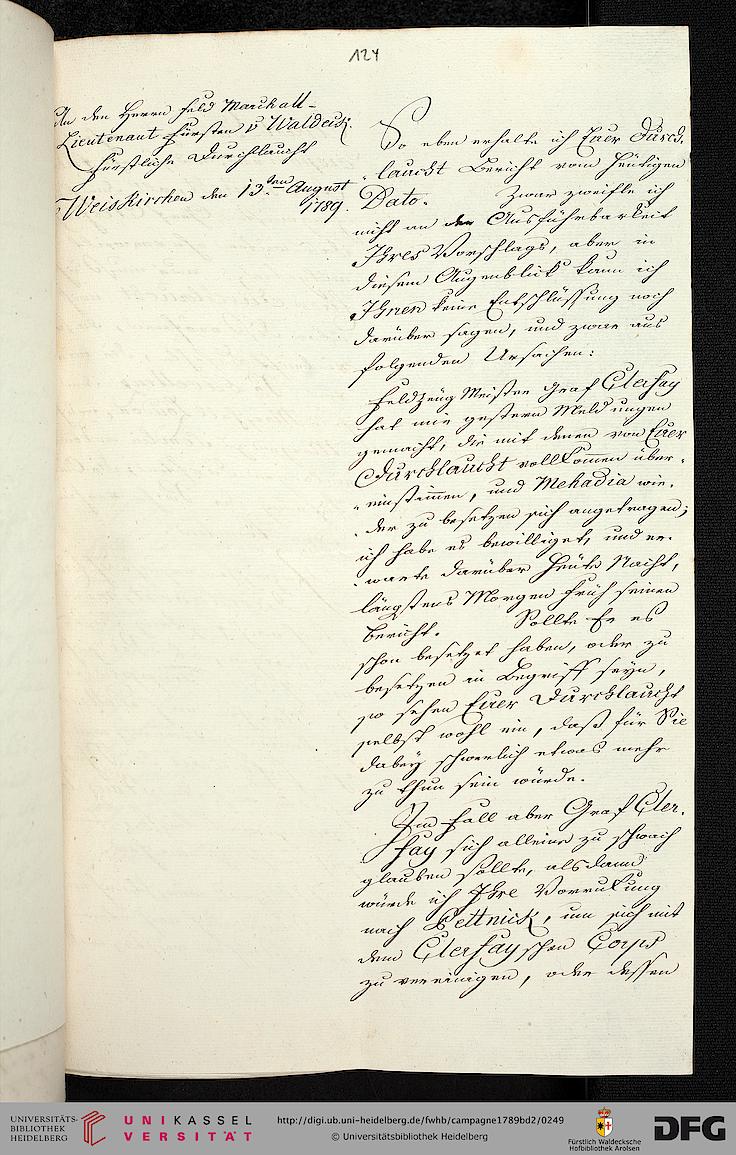 124
An den Herrn Feld Marchall-
Lieutenant Fürsten v Waldeck.
Fürstliche Durchlaucht
Weiskirchen den 13ten August
1789.
So eben erhalte ich Euer Durch-
laucht Bericht vom heutigen
Dato. Zwar zweifle ich
nicht an der Ausführbarkeit
Ihres Vorschlags, aber in
diesem Augenblick kann ich
Ihnen keine Entschlüssung noch
darüber sagen, und zwar aus
folgenden Ursachen:
Feldzeug Meister Graf Clerfay
hat mir gestern Meldungen
gemacht, die mit denen von Euer
Durchlaucht vollkom̄en über-
einstim̄en, und Mehadia wie-
der zu besetzen sich angetragen;
ich habe es bewilliget, und er-
warte darüber heute Nacht,
längstens Morgen früh seinen
Bericht. Sollte Er es
schon besetzet haben, oder zu
besetzen in Begriff seyn,
so sehen Euer Durchlaucht
selbst wohl ein, daß für Sie
dabey schwerlich etwas mehr
zu thun sein würde.
Im Fall aber Graf Cler-
fay sich alleine zu schwach
glauben sollte, alsdann
würde ich Ihre Vorrukung
nach Pettnick, um sich mit
dem Clerfayschen Corps
zu vereinigen, oder dessen
UNIVERSITÄTS-
BIBLIOTHEK
HEIDELBERG
UNIKASSEL
VERSITÄT
http://digi.ub.uni-heidelberg.de/fwhb/campagne1789bd2/0249
© Universitätsbibliothek Heidelberg
Fürstlich Waldecksche
Hofbibliothek Arolsen
DFG